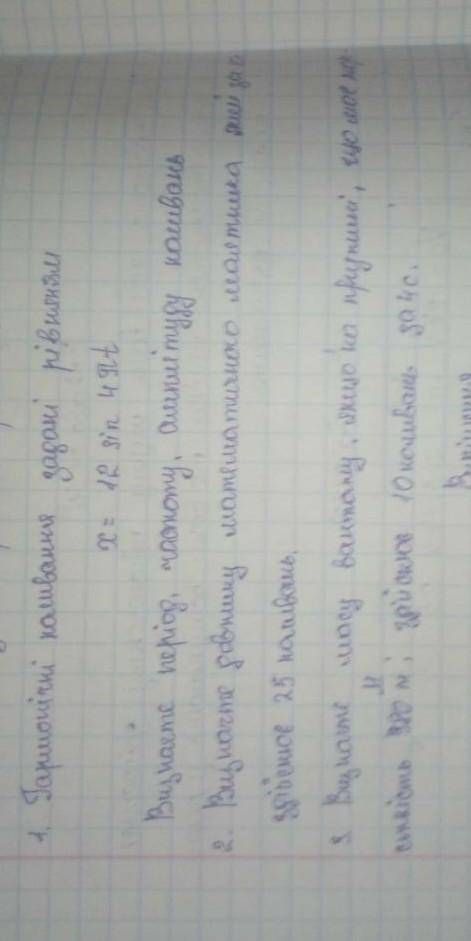 1. Гармонічні коливання задані рівнянням
x = 12 sin 4πt
Визначте період, частоту, амплітуду коливань
2. Визначте довжину математичного маятника який за
здійснює 25 коливань.
3 Визначте масу вантажу, якщо на пружині, що має жор-
сткість Н
м, здійснює 10 коливань за 4с.